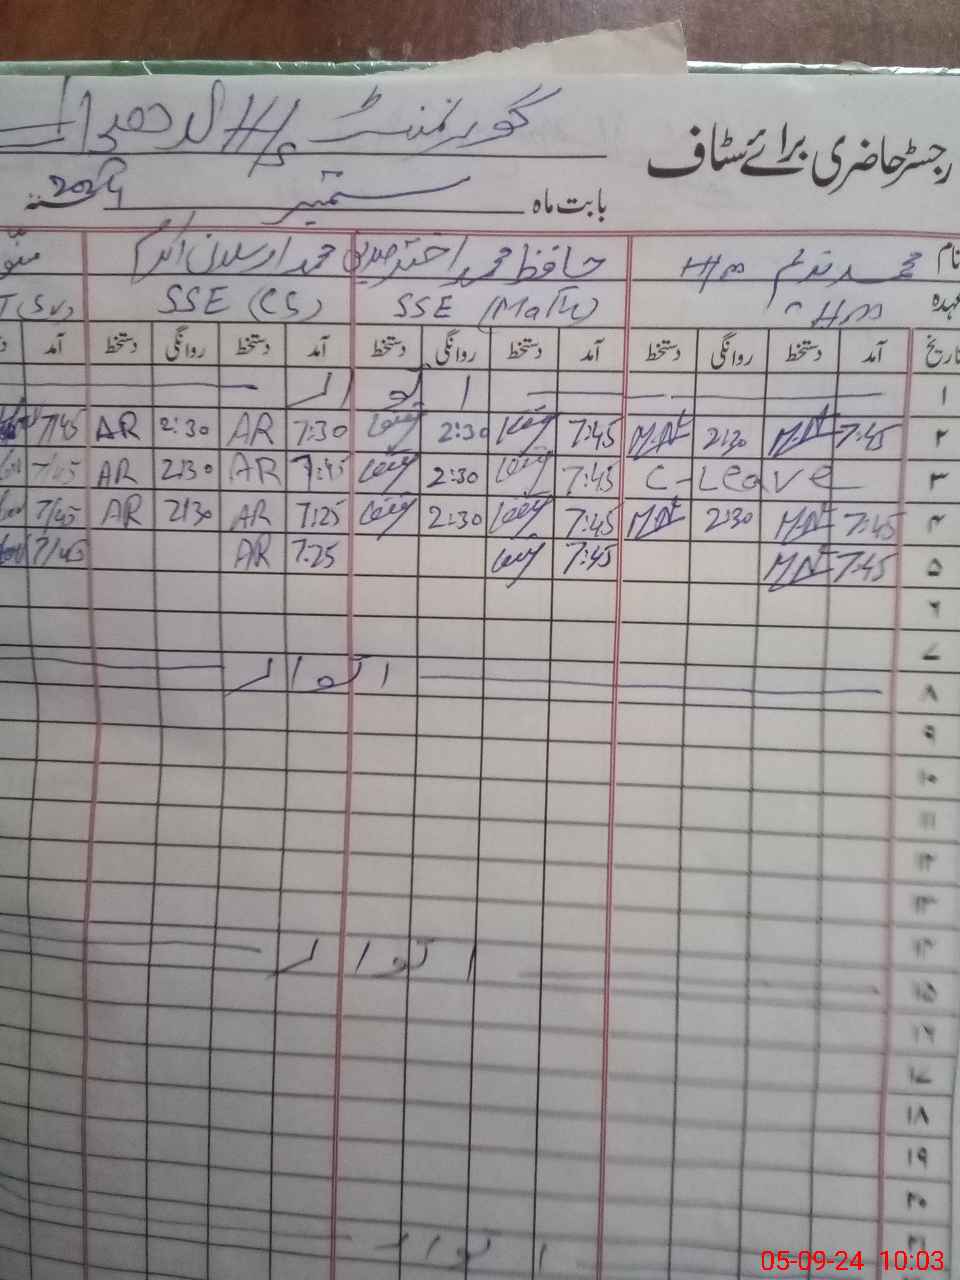 رجسٹر حاضری برائے سٹاف
گورنمنٹ H/S
بابت ماہ ستمبر 2024
نام محمد ندیم HM حافظ محمد اختر محمد ارسلان اکرم
عہدہ HM SSE (Math) SSE (CS)
تاریخ آمد دستخط روانگی دستخط آمد دستخط روانگی دستخط آمد دستخط روانگی دستخط آمد
۱ اتوار
۲ 7:45 2:30 7:45 2:30 7:30 AR 2:30 AR 7/45
۳ C-Leave 7:45 2:30 7:45 AR 2:30 AR 7/45
۴ 7:45 2:30 7:45 2:30 7:25 AR 2:30 AR 7/45
۵ 7:45 7:45 7:25 AR 7/45
۶
۷
۸ اتوار
۹
۱۰
۱۱
۱۲
۱۳
۱۴
۱۵ اتوار
۱۶
۱۷
۱۸
۱۹
۲۰
اتوار
05-09-24 10:03